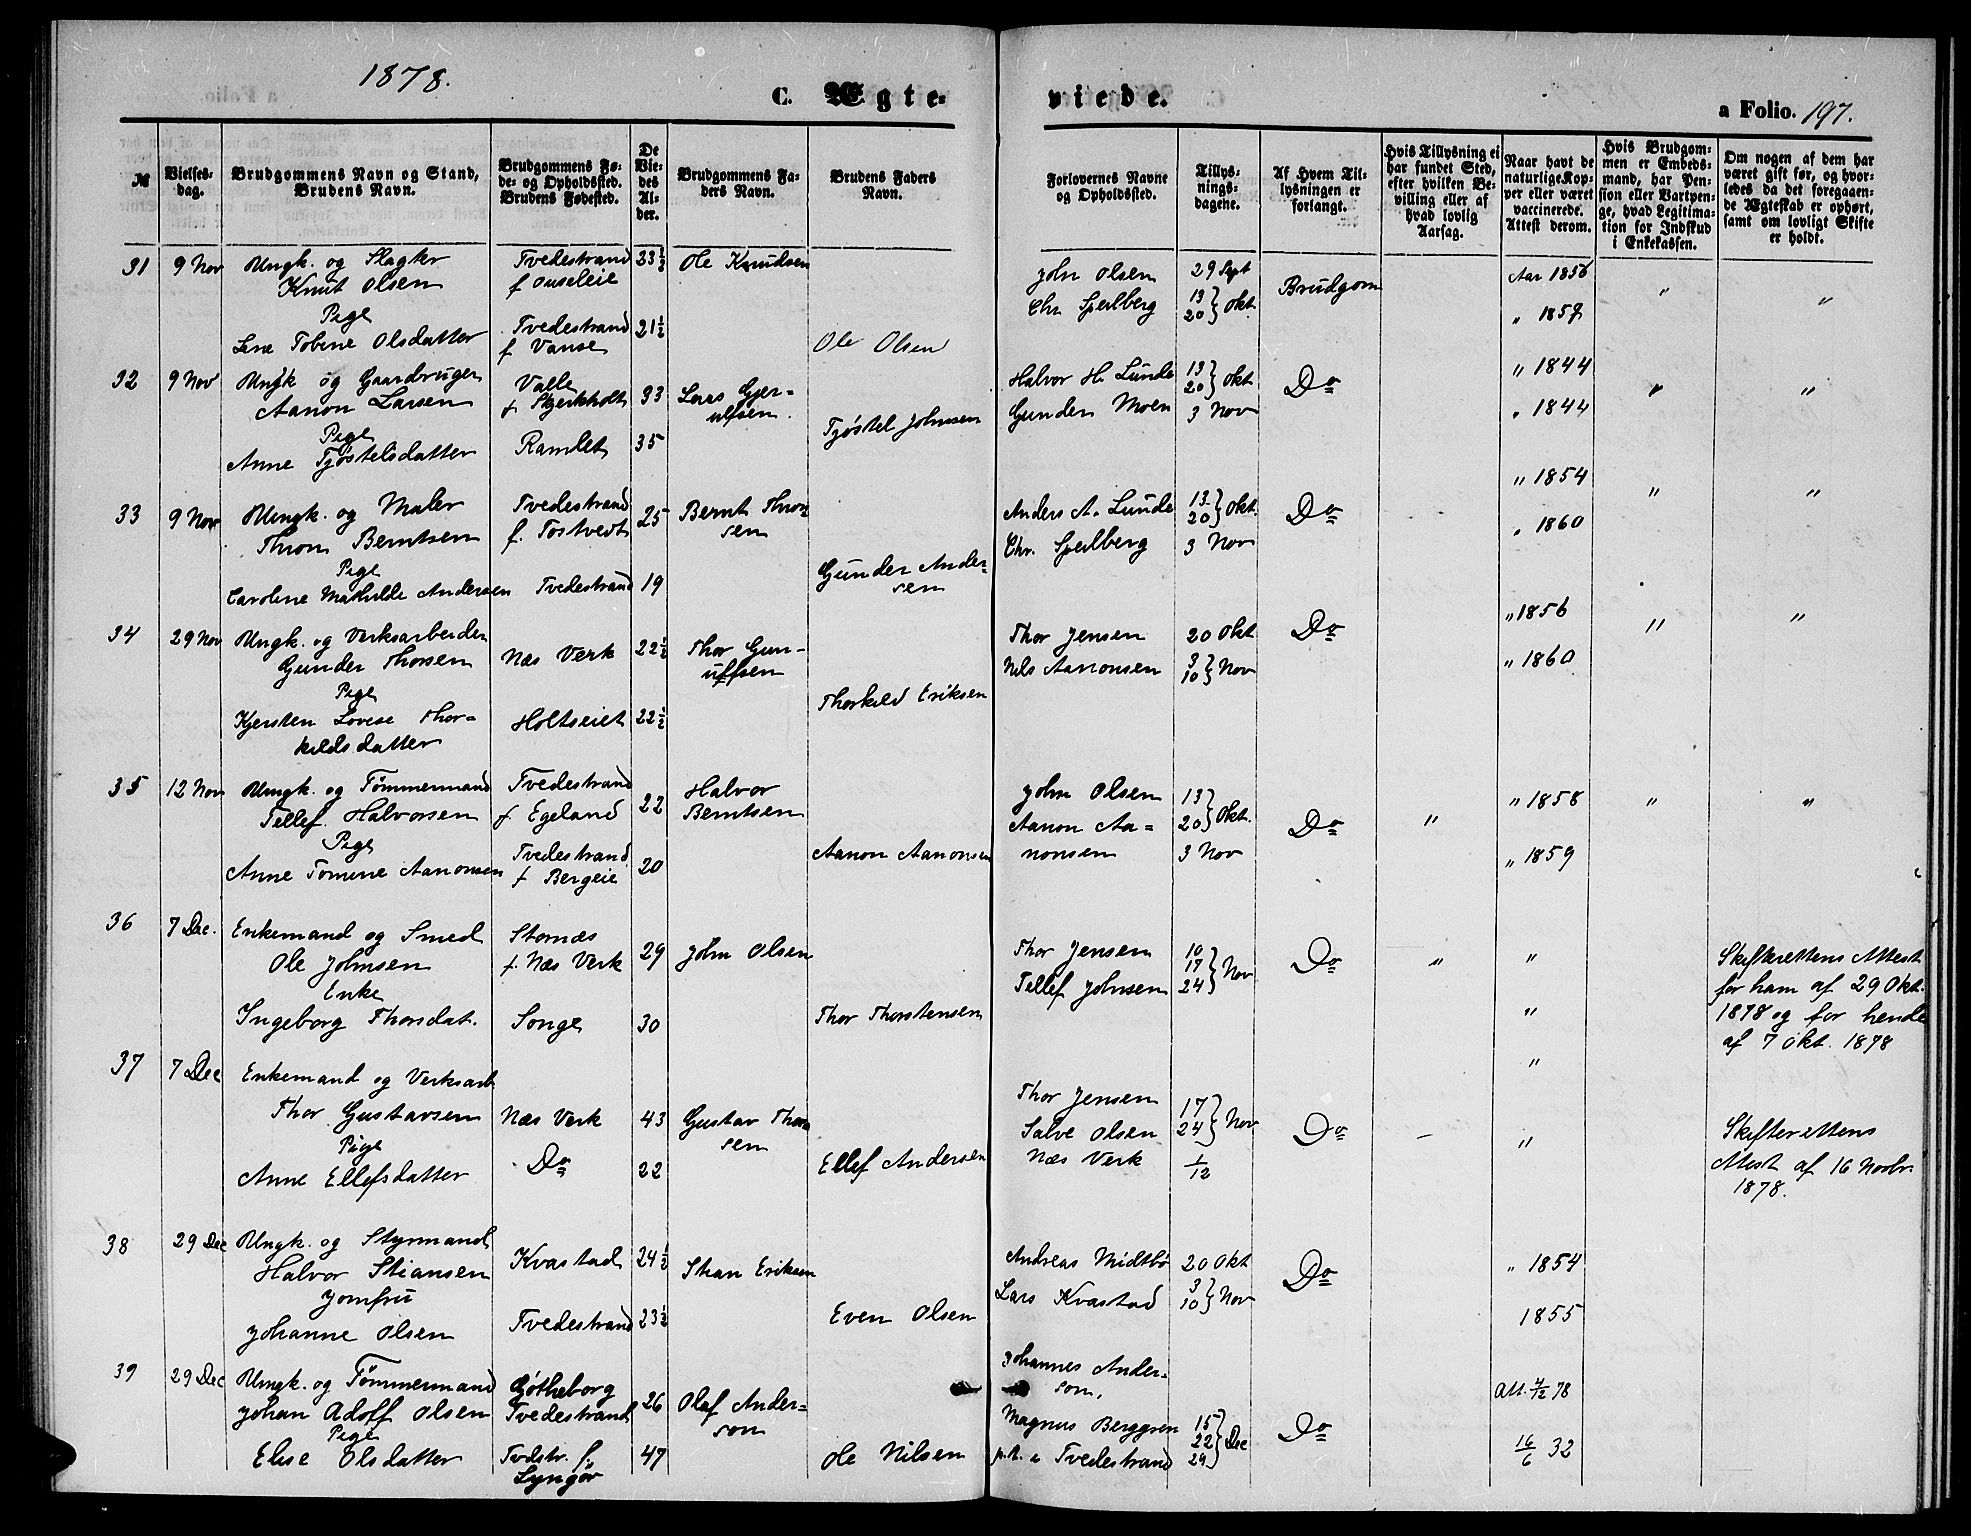 1878.
C. Ægte-
viede.
a Folio. 197.
№
Vielses-
dag.
Brudgommens Navn og Stand,
Brudens Navn.
Brudgommens Fø-
de- og Opholdssted.
Brudens Fødested.
De
Vie-
des
Al-
der.
Brudgommens Fa-
ders Navn.
Brudens Faders
Navn.
Forlovernes Navne
og Opholdssted.
Tillys-
nings-
dagene.
Af Hvem Til-
lysningen er
forlangt.
Hvis Tillysning ei
har fundet Sted,
efter hvilken Be-
villing eller af
hvad lovlig
Aarsag.
Naar havt de
naturlige Kop-
per eller været
vaccinerede.
Attest derom.
Hvis Brudgom-
men er Embeds-
mand, har Pen-
sion eller Vartpen-
ge, hvad Legitima-
tion for Indskud
i Enkekassen.
Om nogen af dem har
været gift før, og hvor-
ledes da det foregaaen-
de Ægteskab er ophørt,
samt om lovligt Skifte
er holdt.
31 9 Nov Ungk. og Slagter Tvedestrand 33½ Ole Knudsen John Olsen 29 Sept Brudgom Aar 1856 " "
Knut Olsen f Ouseleie Chr Speilberg 13 20 } Okt
Pige Tvedestrand 21½ " 1857
Lene Tobine Olsdatter f Vanse Ole Olsen
32 9 Nov Ungk og Gaardbruger Valle 33 Lars Gjer- Halvor H. Lunde 13 20 } Okt Do " 1844 " "
Aanon Larsen f Skjerkholt ulfsen. Gunder Moen 3 Nov " 1844
Pige Tjøstel Johnsen
Anne Tjøstelsdatter Ramlet 35
33 9 Nov Ungk. og Maler Tvedestrand 25 Bernt Thom Anders A. Lunde 13 20 } Okt. Do " 1854 " "
Thom Berntsen f. Tostvedt sen Chr. Speilberg 3 Nov " 1860
Pige Gunder Ander-
Caroline Mathilde Andersen Tvedestrand 19 sen
34 29 Nov Ungk. og Verksarbeider Næs Verk 22½ Thor Gun- Thor Jensen 20 Okt Do " 1856 " "
Gunder Thorsen uffsen Nils Aanonsen 3 10 } Nov " 1860
Pige Thorkild Eriksen
Kjersten Lovise Thor- Holtseiet 22½
kildsdatter
35 12 Nov Ungk. og Tømmermand Tvedestrand 22 Halvor John Olsen 13 20 } Okt. Do " " 1858 " "
Tellef Halvorsen f. Egeland Berntsen Aanon Aa-
Pige Tvedestrand Aanon Aanonsen nonsen 3 Nov " 1859
Anne Tomine Aanonsen f Bergeie 20
36 7 Dec. Enkemand og Smed Stornæs 29 John Olsen Thor Jensen 10 17 24 } Nov Do " " Skifterettens Attest
Ole Johnsen f. Næs Verk Tellef Johnsen for ham af 29 Okt.
Enke " 1878 og for hende
Ingeborg Thorsdat. Songe 30 Thor Thorstensen af 7 Okt. 1878
37 7 Dec Enkemand og Verksarb "
Thor Gustavsen Næs Verk 43 Gustav Thor Thor Jensen 17 24 } Nov Do - " Skifterettens
Pige sen Salve Olsen Attest af 16 Novbr.
Anne Ellefsdatter Do 22 Ellef Andersen Næs Verk 1/12 1878.
38 29 Dec Ungk. og Styrmand Kvastad 24½ Stian Eriksen Andreas Midtbø 20 Okt Do " 1854
Halvor Stiansen Lars Kvastad 3 10 } Nov
Jomfru
Johanne Olsen Tvedestrand 23½ Even Olsen 1855
39 29 Dec Ungk. og Tømmermand Gøtheborg 26 Olaf Ander- Johannes Ander- Att.
Johan Adolf Olsen Tvedestrand son son, 78
Pige Magnus Berggren 15 22 29 } Dec Do
Elise Olsdatter Tvdstr. f. 47 Ole Nilsen p.t. i Tvedestrand 16/6 32
Lyngør